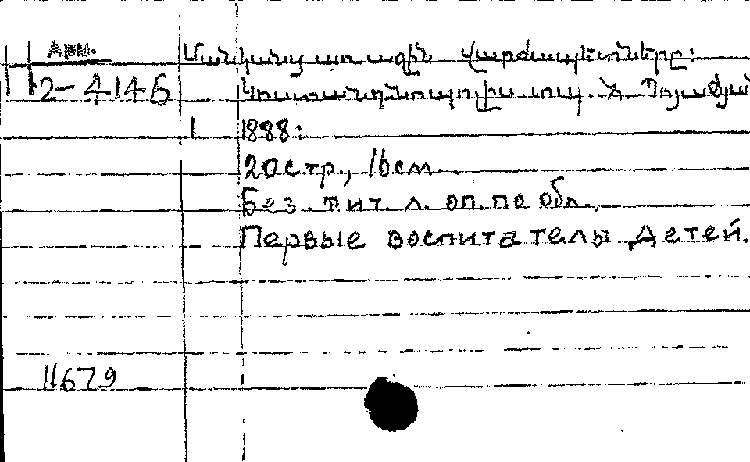 Арм.
Մանկանց առաջին վարժապետները:
2-4146
Կոստանդնուպոլիս տպ. Ճ.
1 1888:
20стр., 16см.
Без тит. л. оп. по обл.
Первые воспитателы детей.
11679